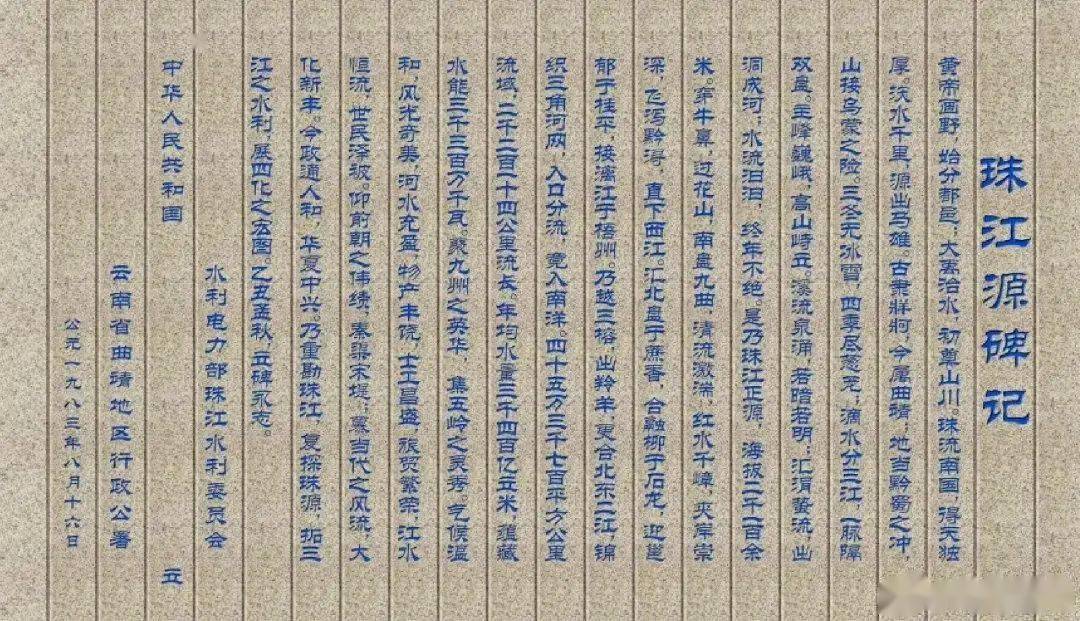 珠江源碑记
黄帝画野，始分都邑；大禹治水，初奠山川。珠流南国，得天独
厚。沃水千里，源出马雄，古隶牂牁，今属曲靖；地当黔蜀之冲，
山接乌蒙之险。三冬无冰雪，四季尽葱茏；滴水分三江，一脉隔
双盘。主峰巍峨，高山峙立。溪流泉涌，若暗若明；汇涓蛰流，出
洞成河；水流汩汩，终年不绝。是乃珠江正源，海拔二千一百余
米。穿牛鼻，过花山，南盘九曲，清流激湍，红水千嶂，夹岸崇
深，飞泻黔浔，直下西江。汇北盘于蔗香，合融柳于石龙，迎邕
郁于桂平，接漓江于梧州。乃越三榕，出羚羊，更合北东二江，锦
织三角河网，入口分流，竞入南洋。四十五万三千七百平方公里
流域，二千二百一十四公里流长。年均水量三千四百亿立米，蕴藏
水能三千三百万千瓦。聚九州之英华，集五岭之灵秀。气候温
和，风光奇美，河水充盈，物产丰饶，士工昌盛，旅贸繁荣，江水
恒流，世民泽被。仰前朝之伟绩，秦渠宋堤；慕当代之风流，大
化新丰。今政通人和，华夏中兴。乃重勘珠江，复探珠源，拓三
江之水利，展四化之宏图。乙丑孟秋，立碑永志。
中华人民共和国
水利电力部珠江水利委员会
云南省曲靖地区行政公署
立
公元一九八三年八月十六日